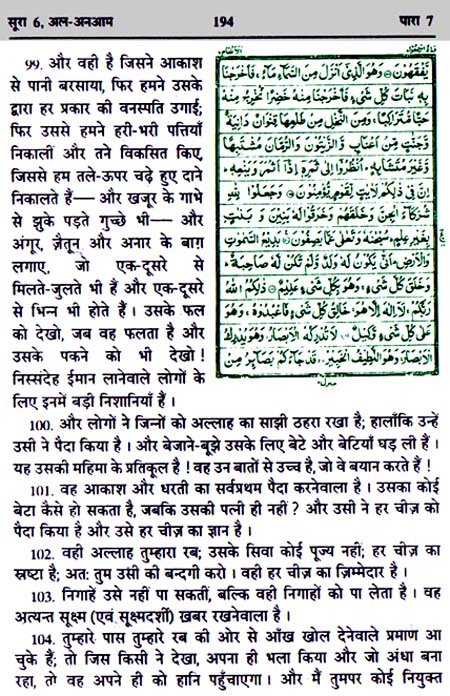 सूरा 6, अल-अनआम 194 पारा 7
99. और वही है जिसने आकाश
से पानी बरसाया, फिर हमने उसके
द्वारा हर प्रकार की वनस्पति उगाई;
फिर उससे हमने हरी-भरी पत्तियाँ
निकालीं और तने विकसित किए,
जिससे हम तले-ऊपर चढ़े हुए दाने
निकालते हैं— और खजूर के गाभे
से झुके पड़ते गुच्छे भी— और
अंगूर, ज़ैतून और अनार के बाग़
लगाए, जो एक-दूसरे से
मिलते-जुलते भी हैं और एक-दूसरे
से भिन्न भी होते हैं। उसके फल
को देखो, जब वह फलता है और
उसके पकने को भी देखो!
निस्संदेह ईमान लानेवाले लोगों के
लिए इनमें बड़ी निशानियाँ हैं।
يَفْقَهُونَ وَهُوَ الَّذِي أَنْزَلَ مِنَ السَّمَاءِ مَاءً فَأَخْرَجْنَا
بِهِ نَبَاتَ كُلِّ شَيْءٍ فَأَخْرَجْنَا مِنْهُ خَضِرًا نُخْرِجُ مِنْهُ
حَبًّا مُتَرَاكِبًا وَمِنَ النَّخْلِ مِنْ طَلْعِهَا قِنْوَانٌ دَانِيَةٌ
وَجَنَّتٍ مِنْ أَعْنَابٍ وَالزَّيْتُونَ وَالرُّمَّانَ مُشْتَبِهًا
وَغَيْرَ مُتَشَابِهٍ انْظُرُوا إِلَى ثَمَرِهِ إِذَا أَثْمَرَ وَيَنْعِهِ
إِنَّ فِي ذَلِكُمْ لَآيَتٍ لِقَوْمٍ يُؤْمِنُونَ وَجَعَلُوا لِلَّهِ
شُرَكَاءَ الْجِنَّ وَخَلَقَهُمْ وَخَرَقُوا لَهُ بَنِينَ وَبَنَتٍ
بِغَيْرِ عِلْمٍ سُبْحَنَهُ وَتَعَلَى عَمَّا يَصِفُونَ بَدِيعُ السَّمَوَتِ
وَالْأَرْضِ أَنَّى يَكُونُ لَهُ وَلَدٌ وَلَمْ تَكُنْ لَهُ صَاحِبَةٌ
وَخَلَقَ كُلَّ شَيْءٍ وَهُوَ بِكُلِّ شَيْءٍ عَلِيمٌ ذَلِكُمُ اللَّهُ
رَبُّكُمْ لَا إِلَهَ إِلَّا هُوَ خَالِقُ كُلِّ شَيْءٍ فَاعْبُدُوهُ وَهُوَ
عَلَى كُلِّ شَيْءٍ وَكِيلٌ لَا تُدْرِكُهُ الْأَبْصَارُ وَهُوَ يُدْرِكُ
الْأَبْصَارَ وَهُوَ اللَّطِيفُ الْخَبِيرُ قَدْ جَاءَكُمْ بَصَائِرُ مِنْ
100. और लोगों ने जिन्नों को अल्लाह का साझी ठहरा रखा है; हालाँकि उन्हें
उसी ने पैदा किया है। और बेजाने-बूझे उसके लिए बेटे और बेटियाँ घड़ ली हैं।
यह उसकी महिमा के प्रतिकूल है! वह उन बातों से उच्च है, जो वे बयान करते हैं!
101. वह आकाश और धरती का सर्वप्रथम पैदा करनेवाला है। उसका कोई
बेटा कैसे हो सकता है, जबकि उसकी पत्नी ही नहीं? और उसी ने हर चीज़ को
पैदा किया है और उसे हर चीज़ का ज्ञान है।
102. वही अल्लाह तुम्हारा रब; उसके सिवा कोई पूज्य नहीं; हर चीज़ का
स्रष्टा है; अत: तुम उसी की बन्दगी करो। वही हर चीज़ का ज़िम्मेदार है।
103. निगाहें उसे नहीं पा सकतीं, बल्कि वही निगाहों को पा लेता है। वह
अत्यन्त सूक्ष्म (एवं सूक्ष्मदर्शी) ख़बर रखनेवाला है।
104. तुम्हारे पास तुम्हारे रब की ओर से आँख खोल देनेवाले प्रमाण आ
चुके हैं; तो जिस किसी ने देखा, अपना ही भला किया और जो अंधा बना
रहा, तो वह अपने ही को हानि पहुँचाएगा। और मैं तुमपर कोई नियुक्त